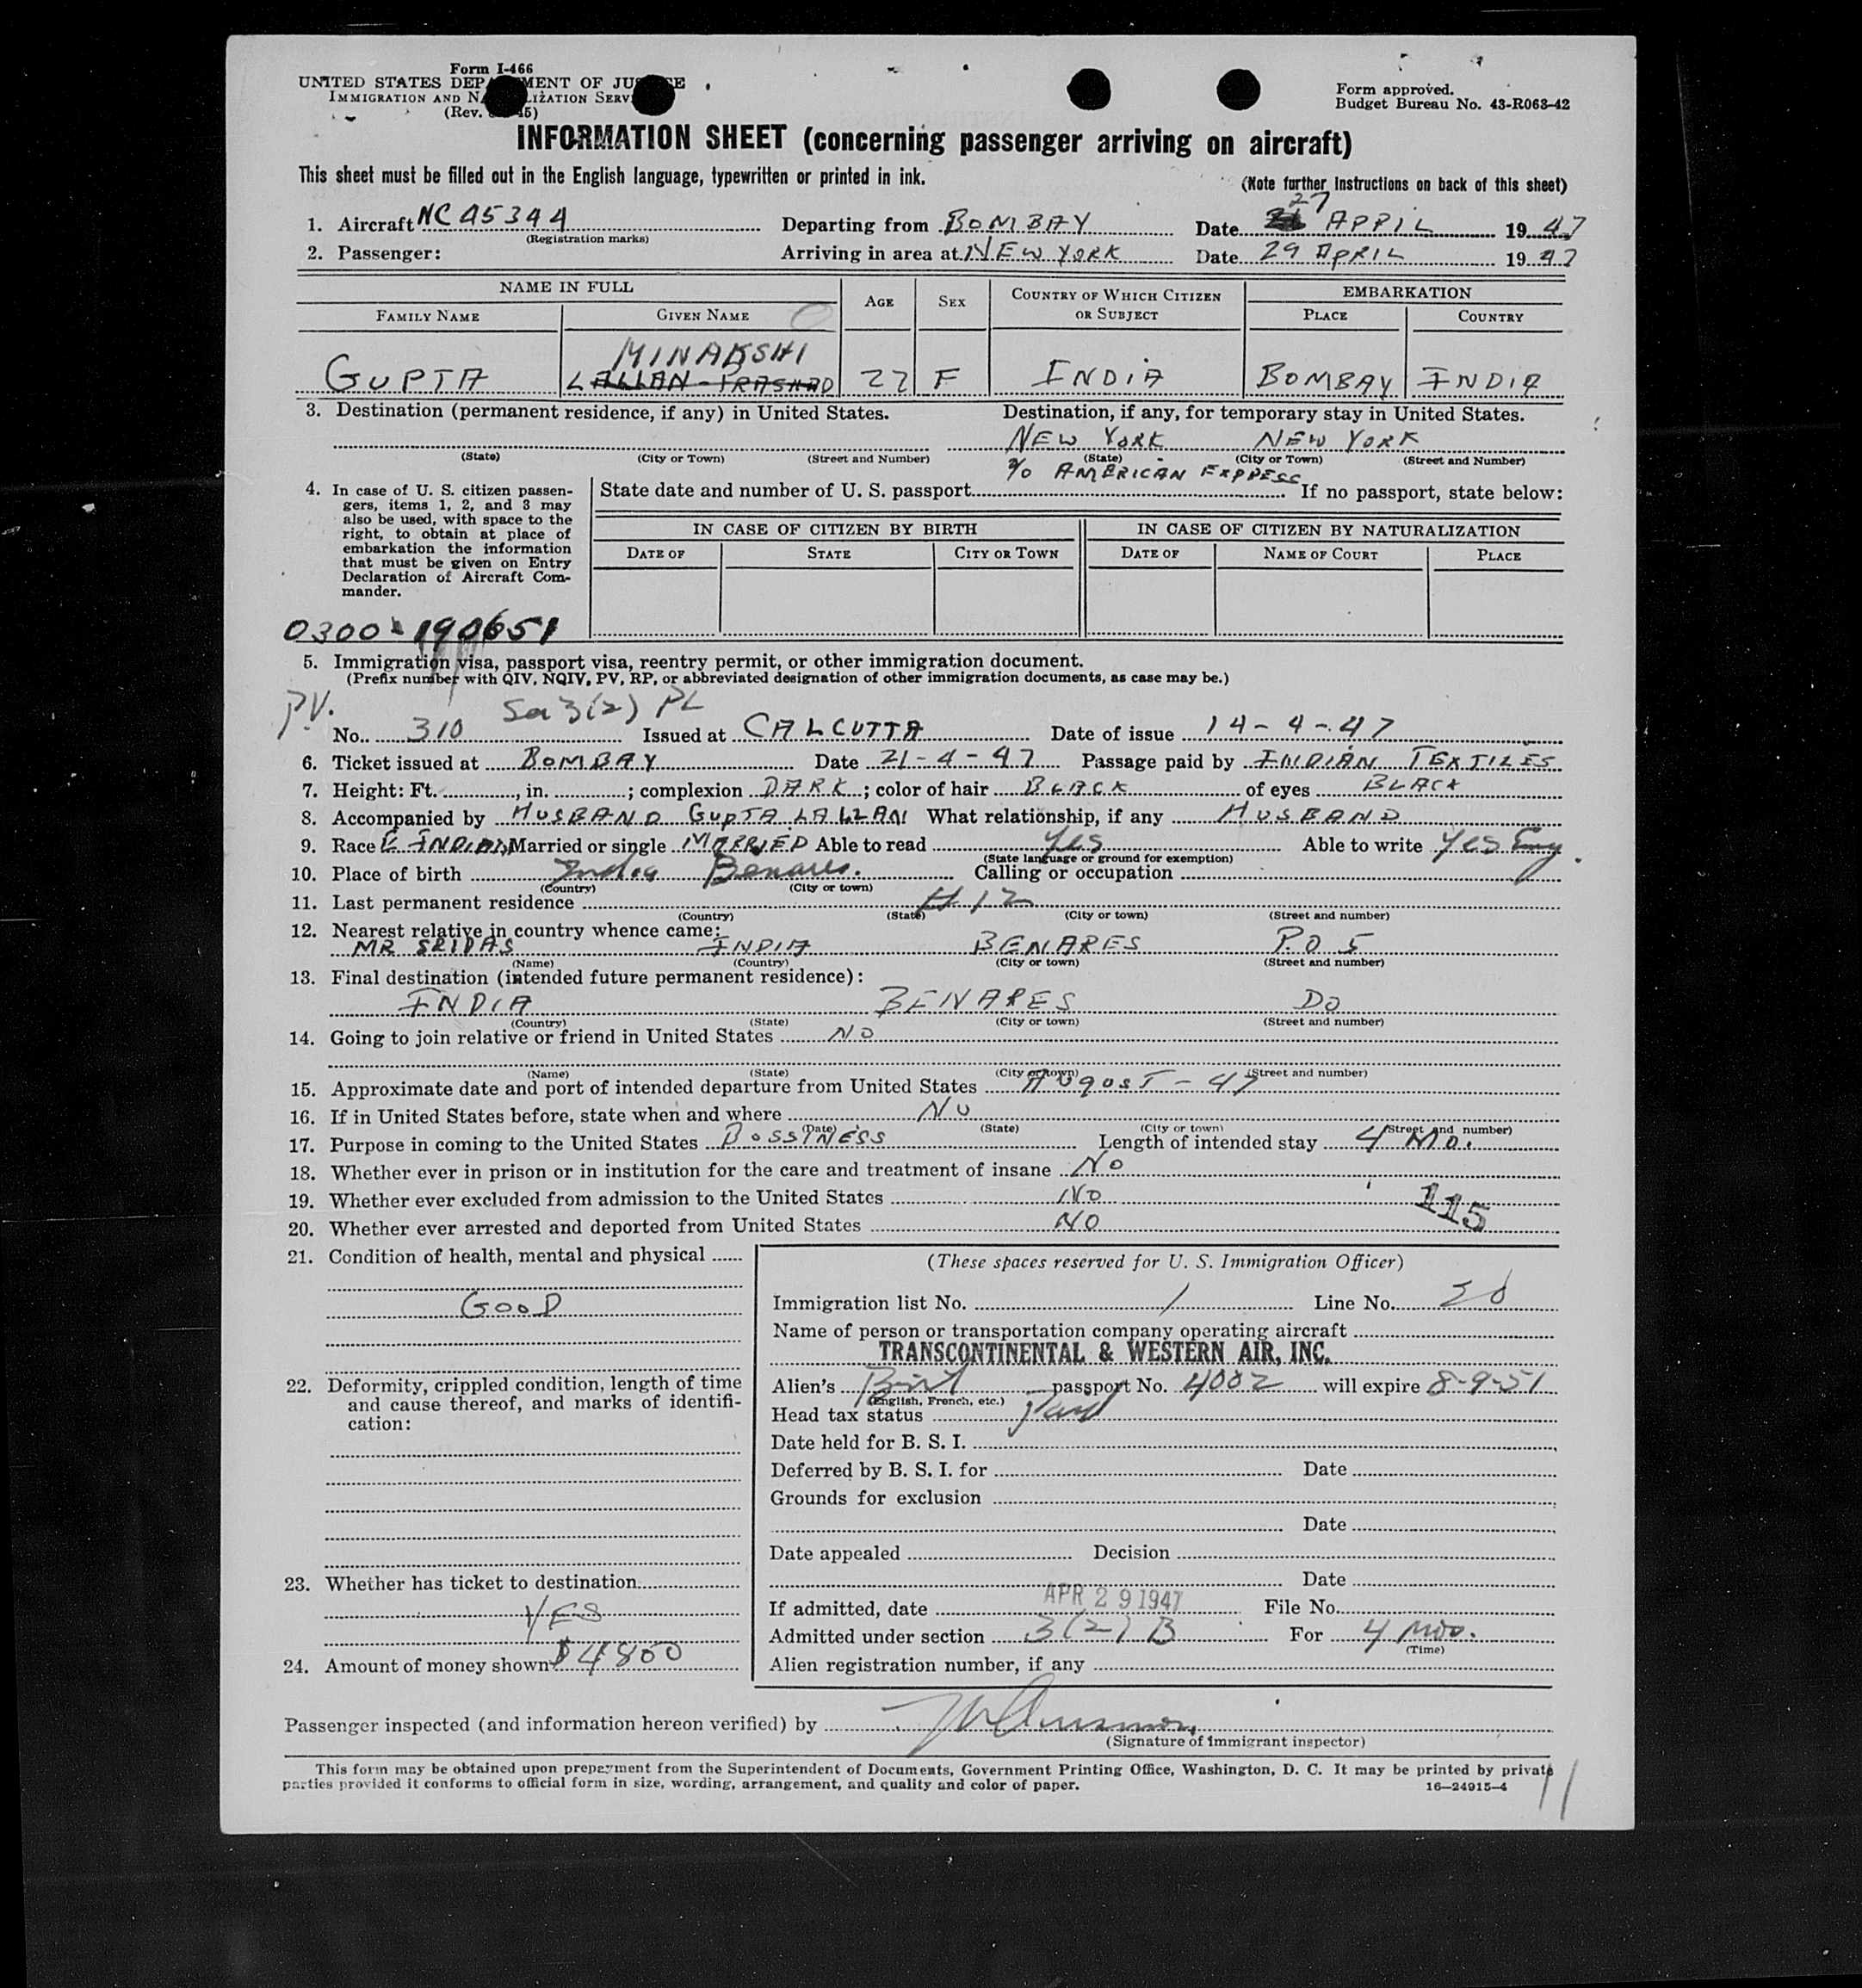 Form I-466
UNITED STATES DEP MENT OF JU E
IMMIGRATION AND N LIZATION SERV
(Rev. 5)
Form approved.
Budget Bureau No. 43-R063-42
INFORMATION SHEET (concerning passenger arriving on aircraft)
This sheet must be filled out in the English language, typewritten or printed in ink.
(Note further Instructions on back of this sheet)
27
1. Aircraft NC 45344 Departing from BOMBAY Date APRIL 1947
(Registration marks)
2. Passenger: Arriving in area at NEW YORK Date 29 APRIL 1947
NAME IN FULL AGE SEX COUNTRY OF WHICH CITIZEN OR SUBJECT EMBARKATION
FAMILY NAME GIVEN NAME PLACE COUNTRY
MINAKSHI
GUPTA LALLAN-PRASHAD 22 F INDIA BOMBAY INDIA
3. Destination (permanent residence, if any) in United States. Destination, if any, for temporary stay in United States.
NEW YORK NEW YORK
(State) (City or Town) (Street and Number) (State) (City or Town) (Street and Number)
% AMERICAN EXPRESS
4. In case of U. S. citizen passengers, items 1, 2, and 3 may also be used, with space to the right, to obtain at place of embarkation the information that must be given on Entry Declaration of Aircraft Commander.
State date and number of U. S. passport If no passport, state below:
IN CASE OF CITIZEN BY BIRTH IN CASE OF CITIZEN BY NATURALIZATION
DATE OF STATE CITY OR TOWN DATE OF NAME OF COURT PLACE
0300-190651
5. Immigration visa, passport visa, reentry permit, or other immigration document.
(Prefix number with QIV, NQIV, PV, RP, or abbreviated designation of other immigration documents, as case may be.)
PV. 3(2) PL
No. 310 Issued at CALCUTTA Date of issue 14-4-47
6. Ticket issued at BOMBAY Date 21-4-47 Passage paid by INDIAN TEXTILES
7. Height: Ft. , in. ; complexion DARK ; color of hair BLACK of eyes BLACK
8. Accompanied by HUSBAND GUPTA LALLAN What relationship, if any HUSBAND
9. Race E INDIAN Married or single MARRIED Able to read Yes Able to write Yes Eng.
(State language or ground for exemption)
10. Place of birth India Benares. Calling or occupation
(Country) (City or town)
11. Last permanent residence H 12
(Country) (State) (City or town) (Street and number)
12. Nearest relative in country whence came:
MR SRIDAS INDIA BENARES P.O 5
(Name) (Country) (City or town) (Street and number)
13. Final destination (intended future permanent residence):
INDIA BENARES DO
(Country) (State) (City or town) (Street and number)
14. Going to join relative or friend in United States NO
(Name) (State) (City or town) (Street and number)
15. Approximate date and port of intended departure from United States AUgOST - 47
16. If in United States before, state when and where NO
(Date) (State) (City or town) (Street and number)
17. Purpose in coming to the United States BOSSINESS Length of intended stay 4 MO.
18. Whether ever in prison or in institution for the care and treatment of insane NO
19. Whether ever excluded from admission to the United States NO
115
20. Whether ever arrested and deported from United States NO
21. Condition of health, mental and physical
GOOD
22. Deformity, crippled condition, length of time and cause thereof, and marks of identification:
23. Whether has ticket to destination
YES
24. Amount of money shown $4800
(These spaces reserved for U. S. Immigration Officer)
Immigration list No. 1 Line No. 30
Name of person or transportation company operating aircraft
TRANSCONTINENTAL & WESTERN AIR, INC.
Alien's Brit passport No. 4002 will expire 8-9-51
(English, French, etc.)
Head tax status Paid
Date held for B. S. I.
Deferred by B. S. I. for Date
Grounds for exclusion
Date
Date appealed Decision
Date
If admitted, date APR 29 1947 File No.
Admitted under section 3(2) B For 4 Mos.
(Time)
Alien registration number, if any
Passenger inspected (and information hereon verified) by
(Signature of immigrant inspector)
This form may be obtained upon prepayment from the Superintendent of Documents, Government Printing Office, Washington, D. C. It may be printed by private
parties provided it conforms to official form in size, wording, arrangement, and quality and color of paper.
16—24915-4